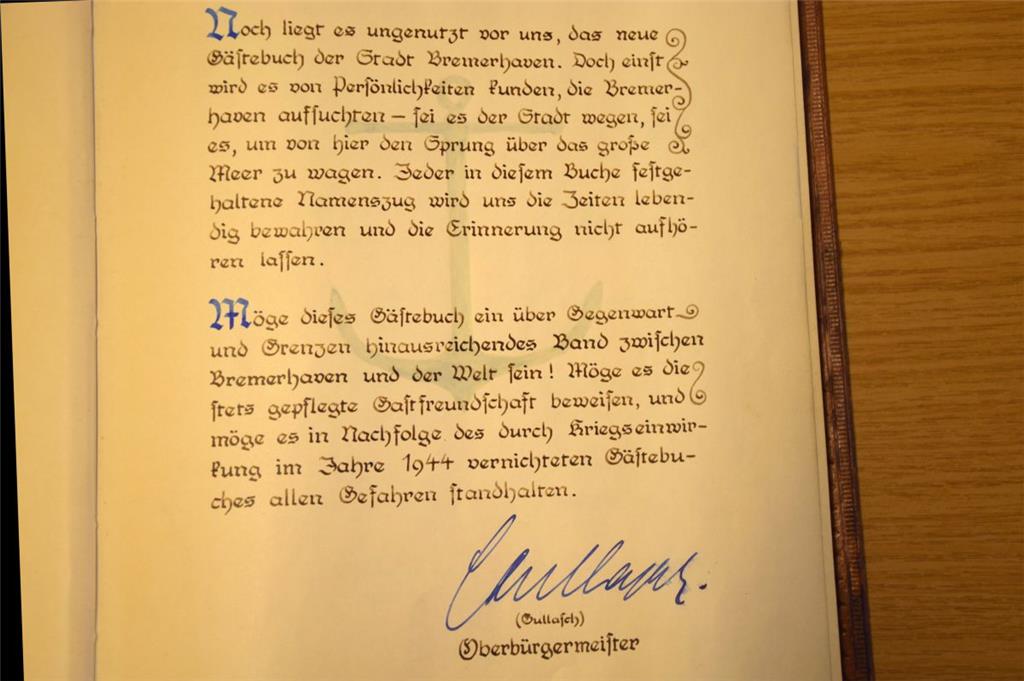 Noch liegt es ungenutzt vor uns, das neue
Gästebuch der Stadt Bremerhaven. Doch einst
wird es von Persönlichkeiten kunden, die Bremer-
haven aufsuchten – sei es der Stadt wegen, sei
es, um von hier den Sprung über das große
Meer zu wagen. Jeder in diesem Buche festge-
haltene Namenszug wird uns die Zeiten leben-
dig bewahren und die Erinnerung nicht aufhö-
ren lassen.
Möge dieses Gästebuch ein über Gegenwart
und Grenzen hinausreichendes Band zwischen
Bremerhaven und der Welt sein! Möge es die
stets gepflegte Gastfreundschaft beweisen, und
möge es in Nachfolge des durch Kriegseinwir-
kung im Jahre 1944 vernichteten Gästebu-
ches allen Gefahren standhalten.
(Gullasch)
Oberbürgermeister